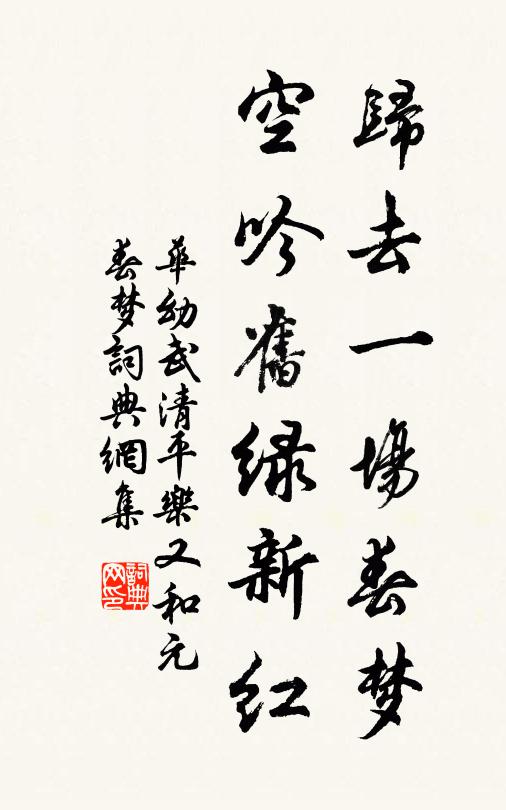 歸去一場春梦
空吟舊绿新红
華幼武清平樂又和元
春梦詞典網集
詞典网印